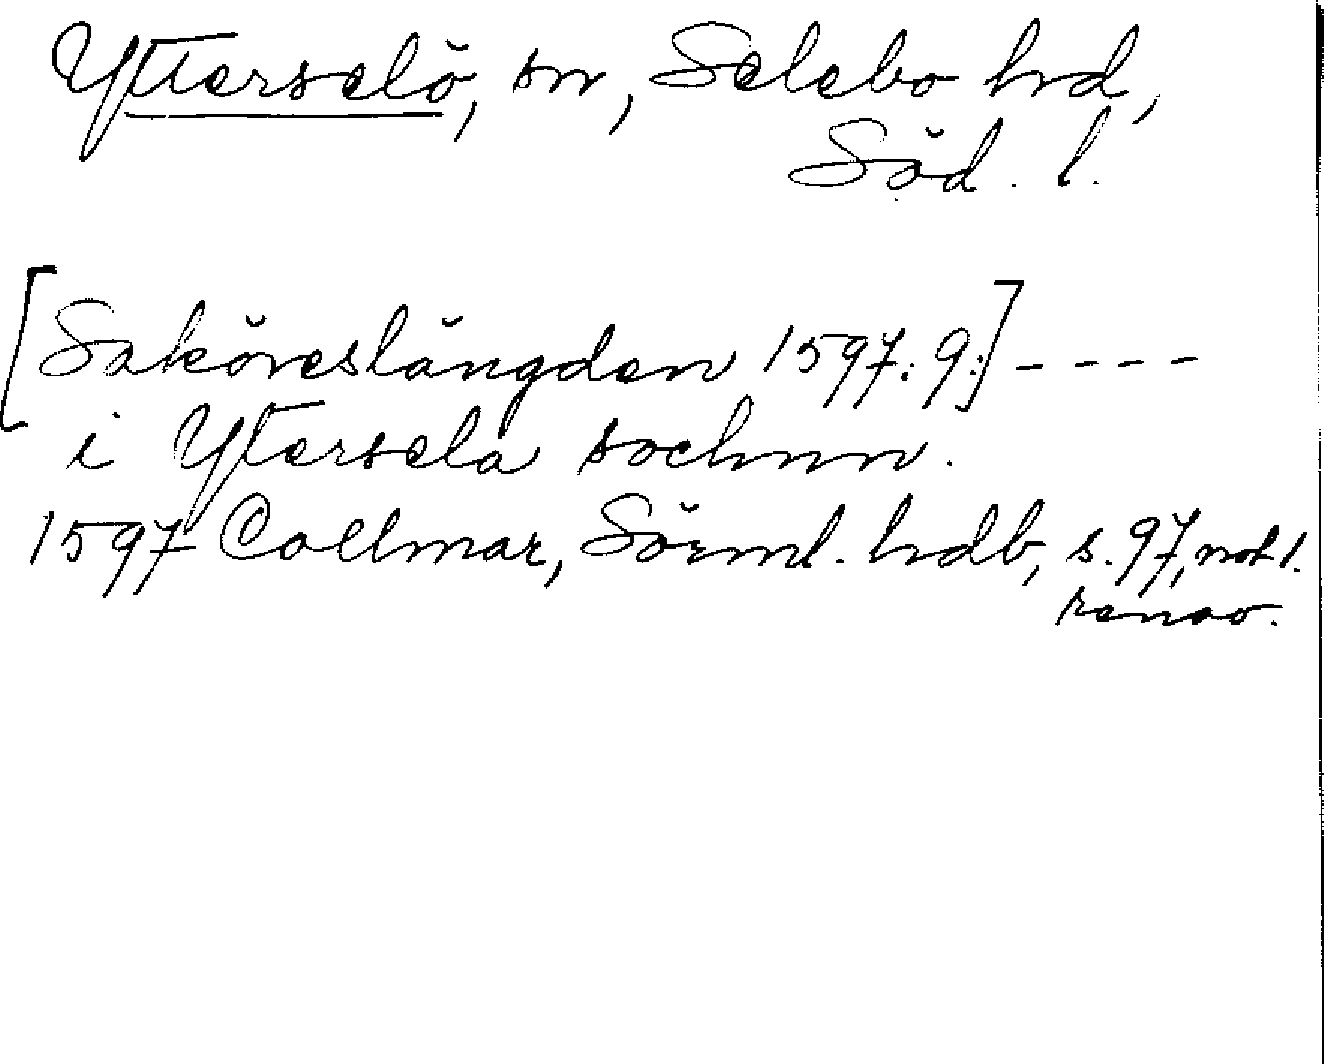 Ytterselö, sn, Selebo hd,
Söd. l.
[Saköreslängden 1597:9:] ----
i Ytersela sochnn.
1597 Collmar, Sörml. hdb, s. 97, not 1.